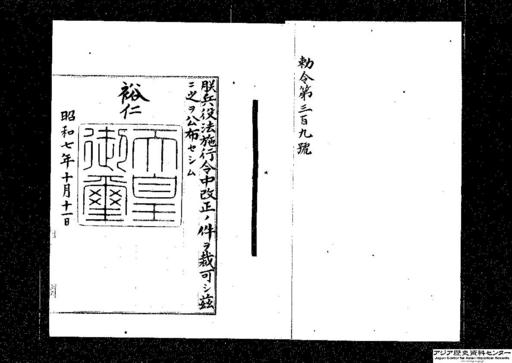 勅令第三百九號
朕兵役法施行令中改正ノ件ヲ裁可シ茲
ニ之ヲ公布セシム
裕仁
天皇
御璽
昭和七年十月十一日
アジア歴史資料センター
Japan Center for Asian Historical Records